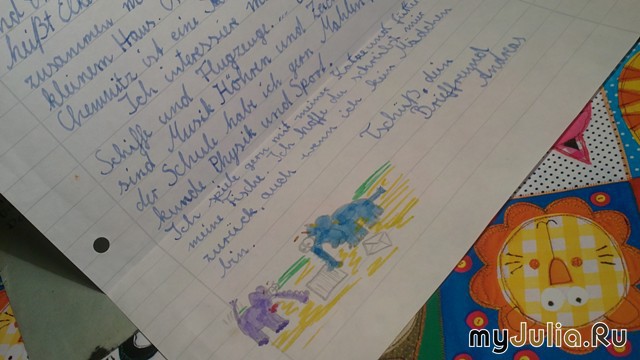 heißt
zusammen m
kleinem Haus.
Chemnitz ist eine
Ich interessiere m
Schiffe und Flugzeuge...
sind Musik Höhren und
der Schule hab ich gern Mathem
kunde Physik und Sport.
Ich spiele gern mit meiner und füttre
meine Fische. Ich hoffe du schreibst mir
zurück auch wenn ich kein Mädchen
bin.
Tschüß, dein
Brieffreund
Andreas
myJulia.Ru